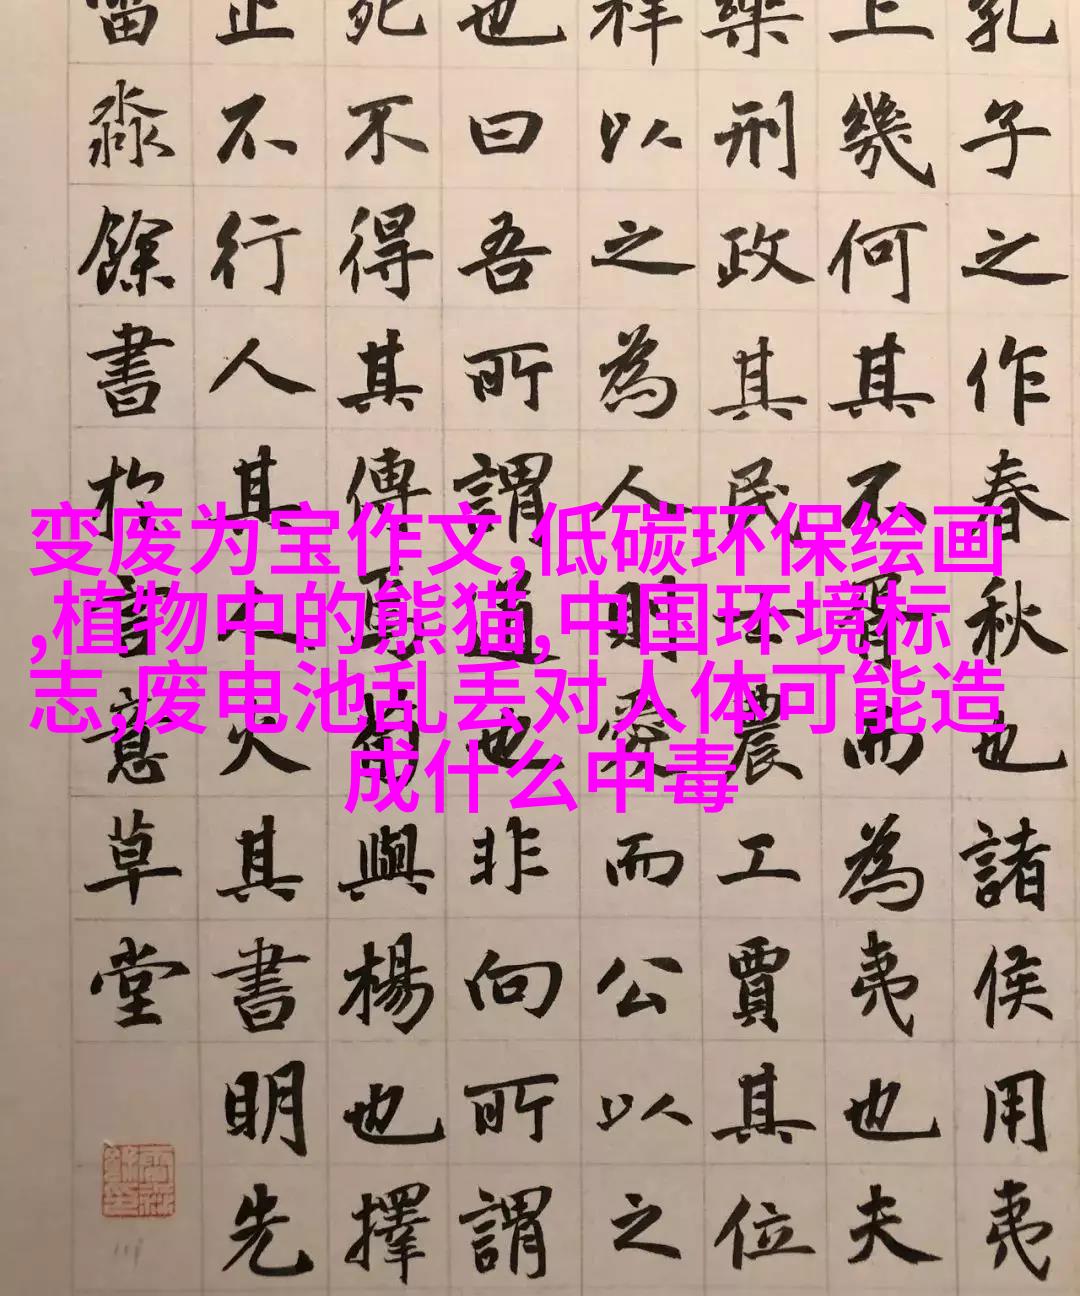 孔子之作春秋也諸侯用夷
上幾何其不胥而為夷也夫
樂刑政其民士農工賈其位
祥以之為人則愛而公以之
也曰吾所謂道也非向所謂
死不得其傳焉荀與楊也擇
正不行人其人火其書明先
淼餘書於言意草堂
变废为宝作文,低碳环保绘画
,植物中的熊猫,中国环境标
志,废电池乱丢对人体可能造
成什么中毒